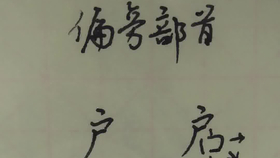 偏旁部首
户 户